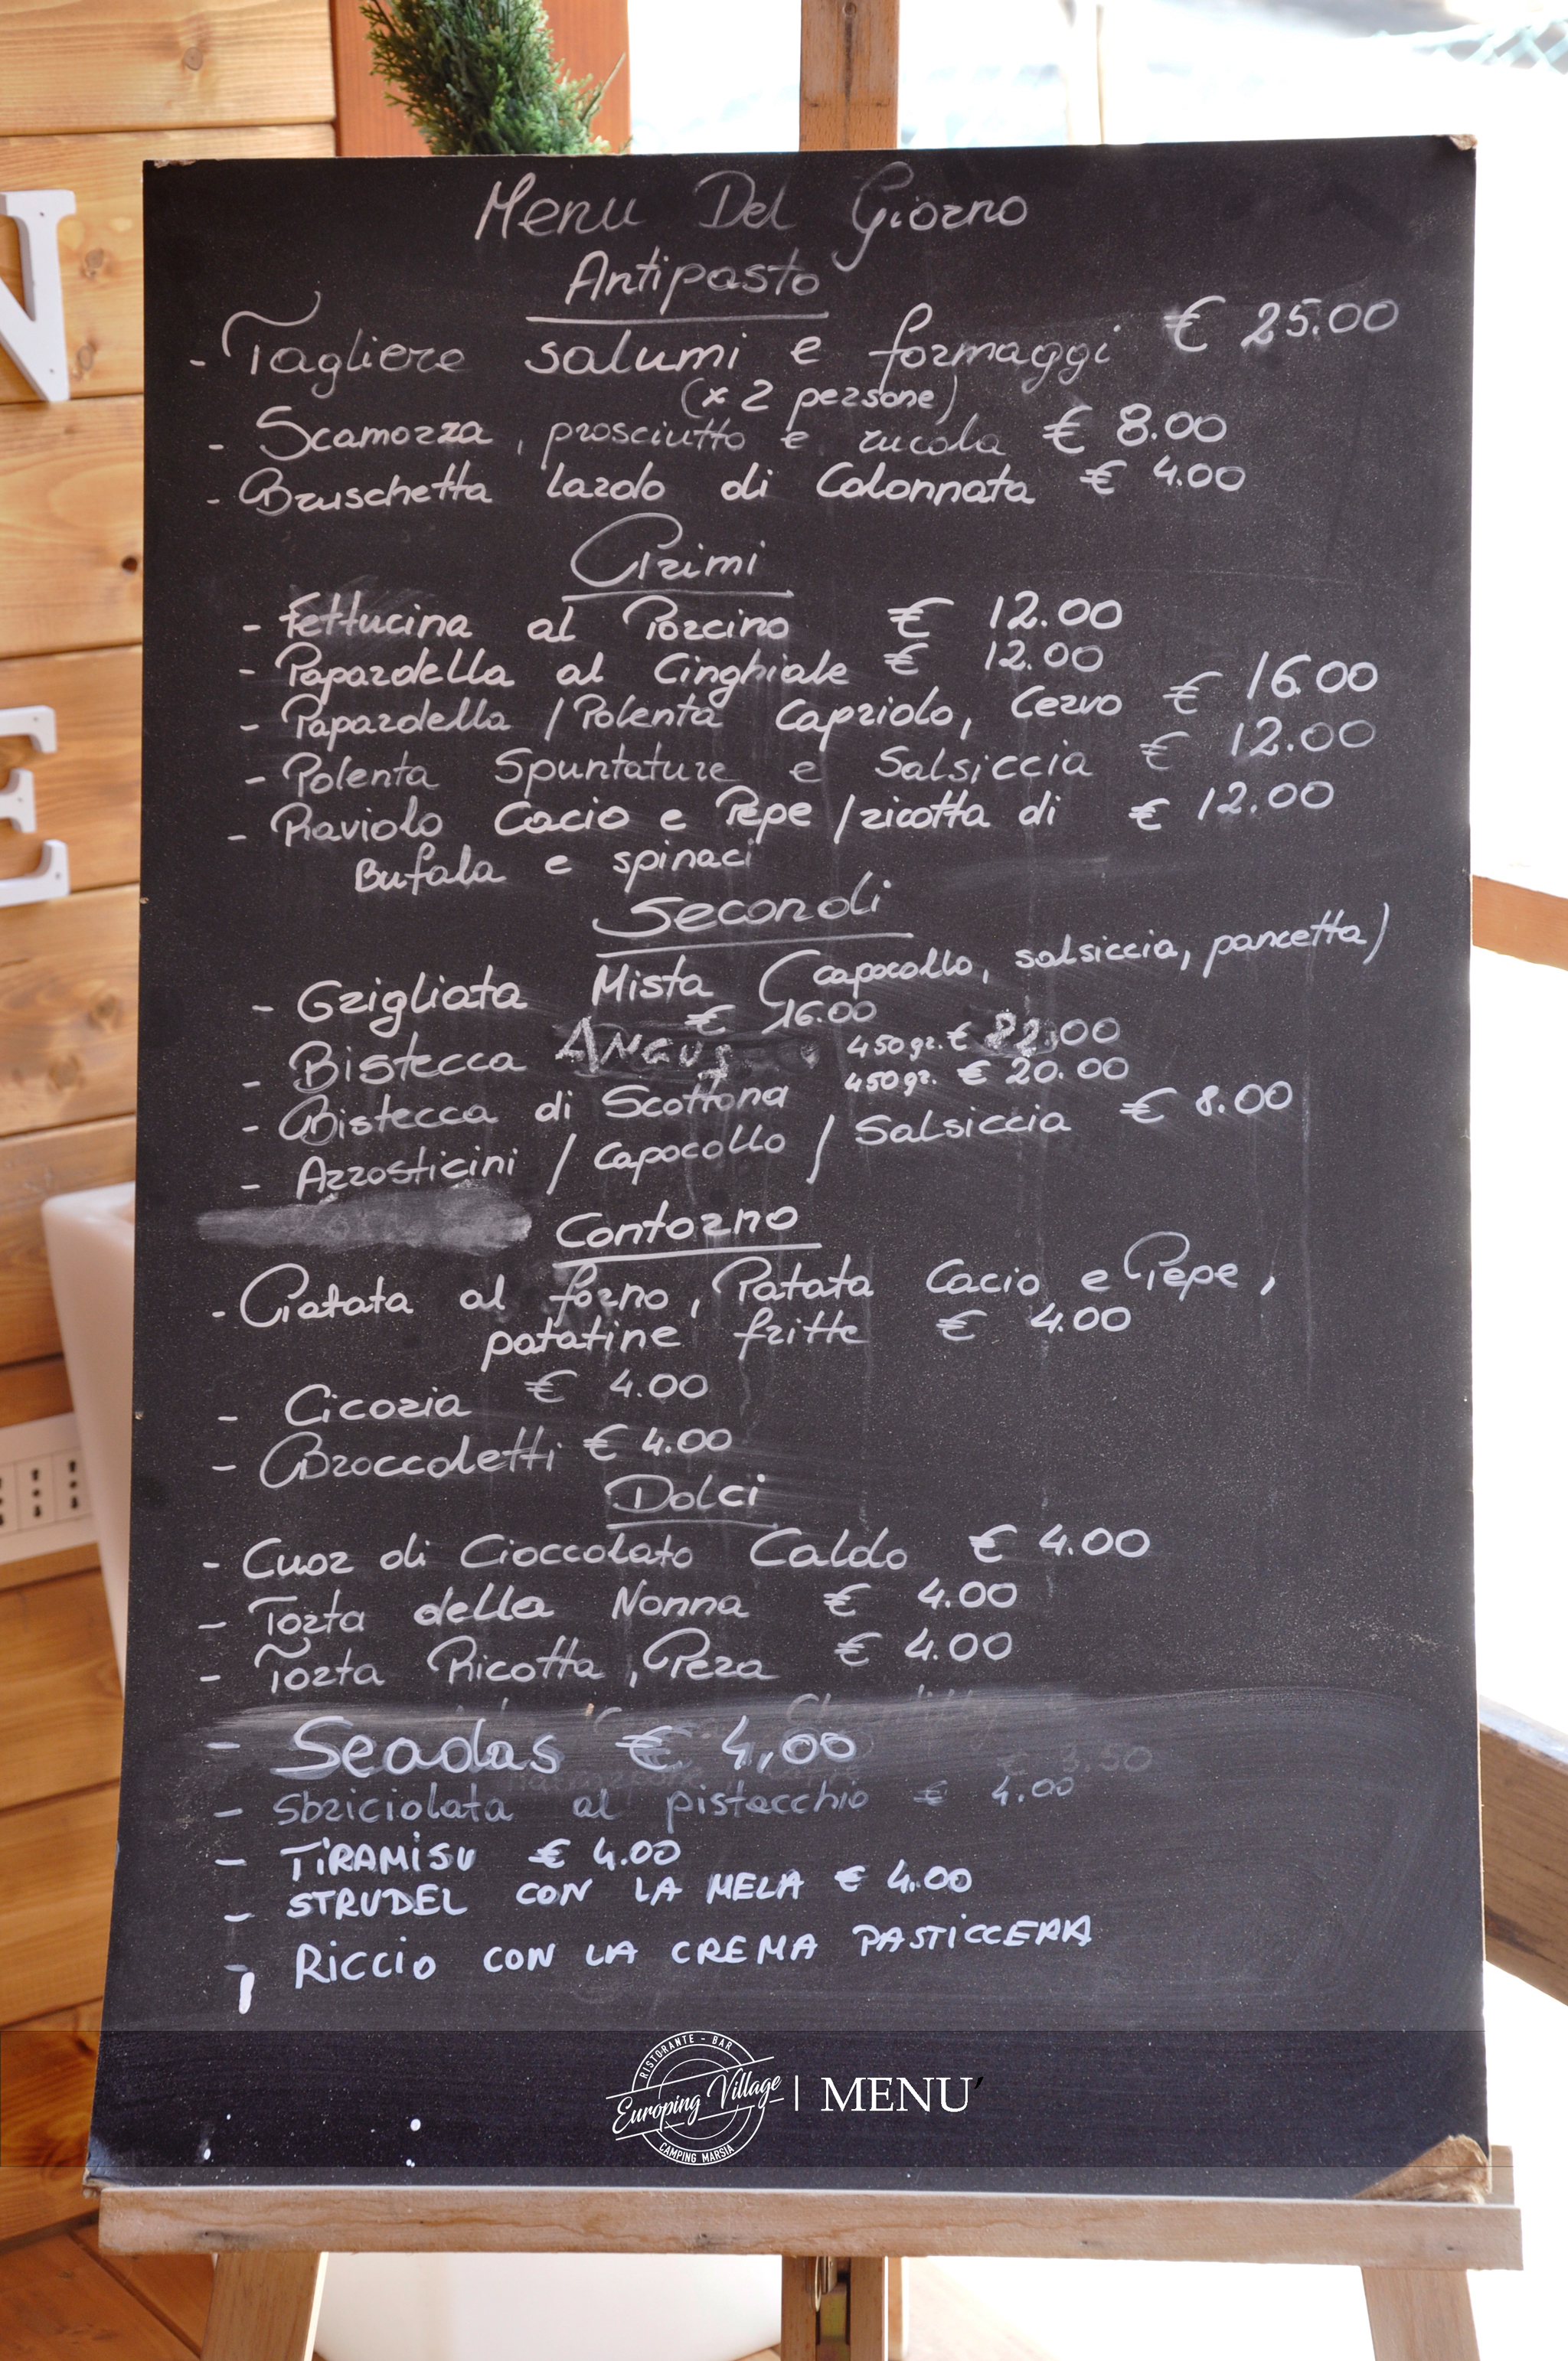 Menu Del Giorno
Antipasto
- Tagliere salumi e formaggi € 25.00
(x 2 persone)
- Scamozza, prosciutto e rucola € 8.00
- Bruschetta lardo di Colonnata € 4.00
Primi
- Fettucina al Porcino € 12.00
- Papardella al Cinghiale € 12.00
- Papardella / Polenta Capriolo, Cervo € 16.00
- Polenta Spuntature e Salsiccia € 12.00
- Raviolo Cacio e Pepe / ricotta di € 12.00
Bufala e spinaci
Secondi
- Grigliata Mista (capocollo, salsiccia, pancetta)
€ 16.00
- Bistecca ANGUS 450gr. € 22.00
- Bistecca di Scottona 450gr. € 20.00
- Arrosticini / Capocollo / Salsiccia € 8.00
Contorno
- Patata al forno, Patata Cacio e Pepe,
patatine fritte € 4.00
- Cicoria € 4.00
- Broccoletti € 4.00
Dolci
- Cuor di Cioccolato Caldo € 4.00
- Torta della Nonna € 4.00
- Torta Ricotta, Pera € 4.00
- Seadas € 4,00
- Sbriciolata al pistacchio € 4.00
- TIRAMISU € 4.00
- STRUDEL CON LA MELA € 4.00
- RICCIO CON LA CREMA PASTICCERA
RISTORANTE - BAR
Europing Village | MENU'
CAMPING MARSIA
N
E